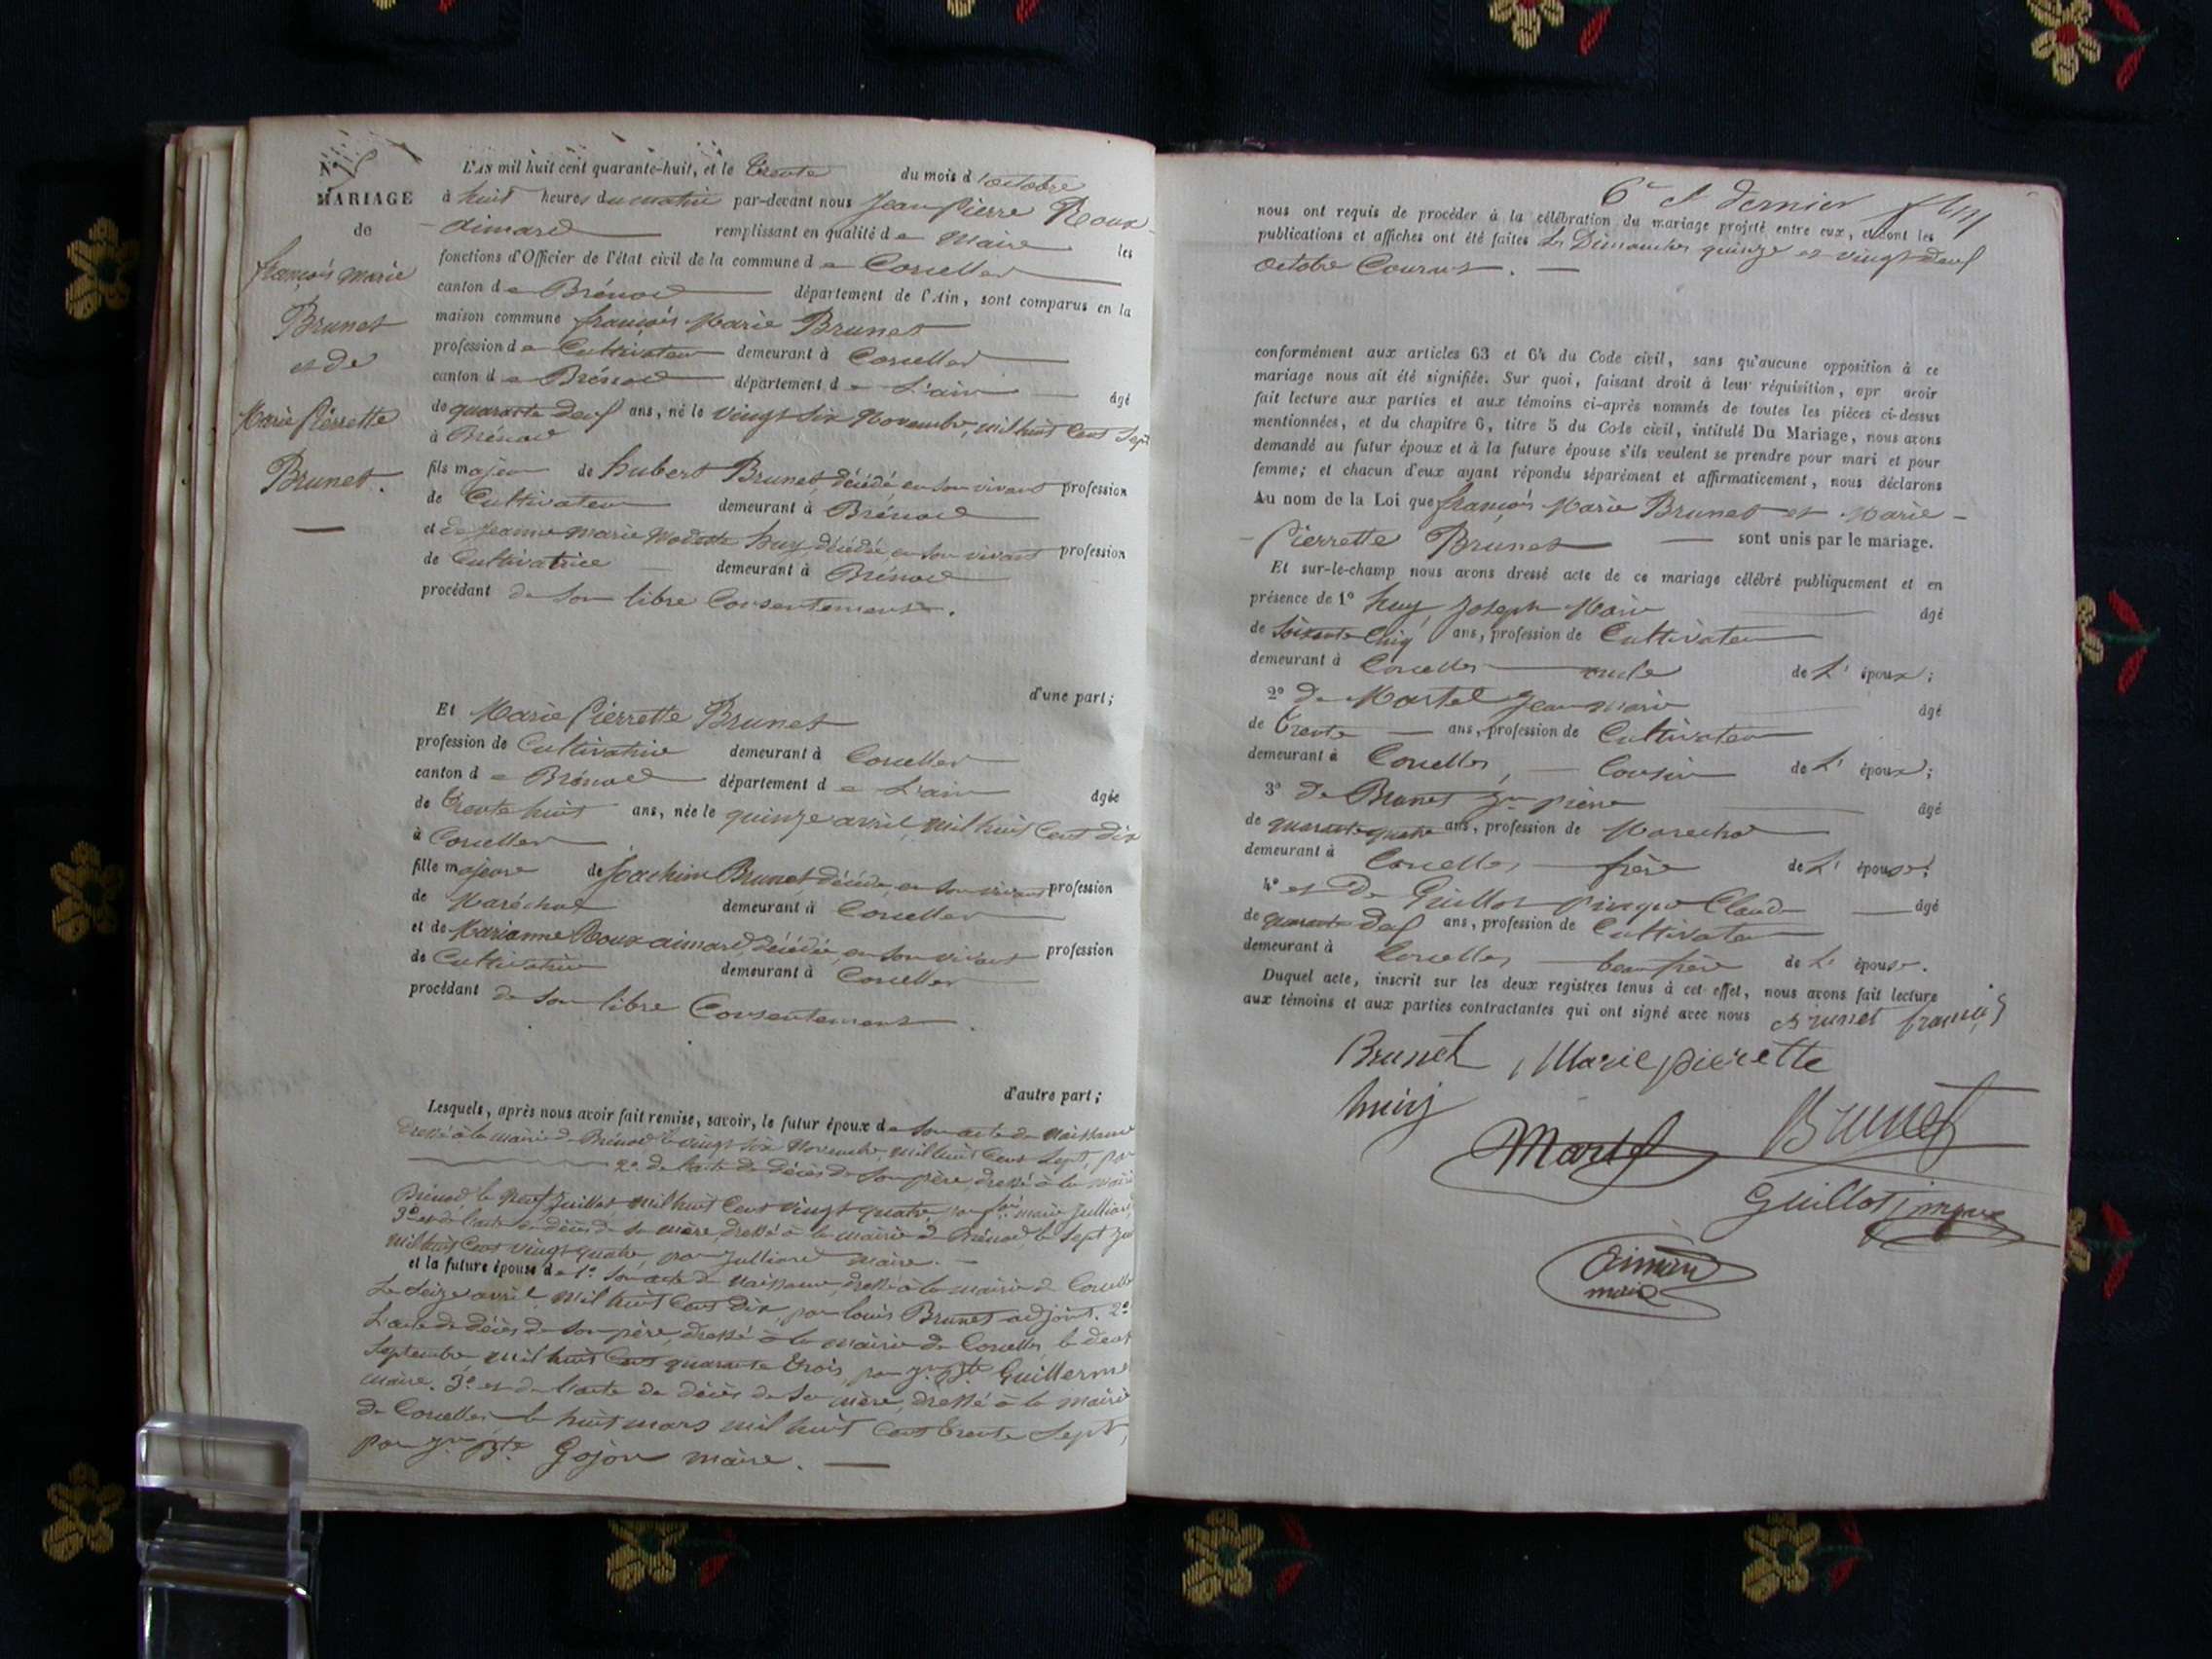 N°
MARIAGE
de
françois marie
Brunet
et de
Marie Pierrette
Brunet.
L'AN mil huit cent quarante-huit, et le trente du mois d'octobre
à huit heures du matin par-devant nous Jean Pierre Roux-
aimard remplissant en qualité de Maire les
fonctions d'Officier de l'état civil de la commune de Corcelles
canton de Brénod département de l'Ain, sont comparus en la
maison commune françois Marie Brunet
profession de Cultivateur demeurant à Corcelles
canton de Brénod département de L'ain âgé
de quarante deuf ans, né le vingt six Novembre, mil huit Cent Sept
à Brénod
fils majeur de hubert Brunet, décédé, en son vivant profession
de Cultivateur demeurant à Brénod
et de Jeanne Marie Modeste huy, décédée, en son vivant profession
de Cultivatrice demeurant à Brénod
procédant de son libre Consentement.
d'une part;
Et Marie Pierrette Brunet
profession de Cultivatrice demeurant à Corcelles
canton de Brénod département de L'ain âgée
de trente huit ans, née le quinze avril, mil huit Cent dix
à Corcelles
fille majeure de Joachim Brunet, décédé, en son vivant profession
de Maréchal demeurant à Corcelles
et de Marianne Roux aimard, décédée, en son vivant profession
de Cultivatrice demeurant à Corcelles
procédant de son libre Consentement.
d'autre part;
Lesquels, après nous avoir fait remise, savoir, le futur époux de son acte de Naissance
dressé à la mairie de Brénod le vingt six Novembre, mil huit Cent Sept, par
2° de l'acte de décès de son père, dressé à la mairie
Brénod, le neuf Juillet mil huit Cent vingt quatre, par maire Julliard,
3° et de l'acte de décès de sa mère, dressé à la mairie de Brénod, le sept
mil huit Cent vingt quatre, par Julliard maire.
et la future épouse de 1° son acte de Naissance, dressé à la mairie de Corcelles
Le Seize avril, mil huit Cent dix, par louis Brunet adjoint. 2°
L'acte de décès de son père, dressé à la mairie de Corcelles, le deux
Septembre, mil huit Cent quarante trois, par Jn Bte Guillerme
maire. 3° et de l'acte de décès de sa mère, dressé à la mairie
de Corcelles le huit mars mil huit Cent trente Sept,
par Jn Bte Gojon maire.
6e et dernier
nous ont requis de procéder à la célébration du mariage projeté entre eux, et dont les
publications et affiches ont été faites les Dimanches quinze et vingt deuf
octobre Courant.
conformément aux articles 63 et 64 du Code civil, sans qu'aucune opposition à ce
mariage nous ait été signifiée. Sur quoi, faisant droit à leur réquisition, apr avoir
fait lecture aux parties et aux témoins ci-après nommés de toutes les pièces ci-dessus
mentionnées, et du chapitre 6, titre 5 du Code civil, intitulé Du Mariage, nous avons
demandé au futur époux et à la future épouse s'ils veulent se prendre pour mari et pour
femme; et chacun d'eux ayant répondu séparément et affirmativement, nous déclarons
Au nom de la Loi que françois Marie Brunet et Marie-
-Pierrette Brunet sont unis par le mariage.
Et sur-le-champ nous avons dressé acte de ce mariage célébré publiquement et en
présence de 1° huy Joseph Marie âgé
de Soixante Cinq ans, profession de Cultivateur
demeurant à Corcelles oncle de L' époux;
2° de Martel Jean Marie âgé
de trente ans, profession de Cultivateur
demeurant à Corcelles, Cousin de L' époux;
3° de Brunet Jn pierre âgé
de quarante quatre ans, profession de Marechal
demeurant à Corcelles frère de L' épouse;
4° et de Guillot Pingue Claude âgé
de quarante deuf ans, profession de Cultivateur
demeurant à Corcelles beau frère de L' épouse.
Duquel acte, inscrit sur les deux registres tenus à cet effet, nous avons fait lecture
aux témoins et aux parties contractantes qui ont signé avec nous Brunet françois
Brunet Marie pierette
huy
Martel Brunet
Guillot pingue
Aimard
maire